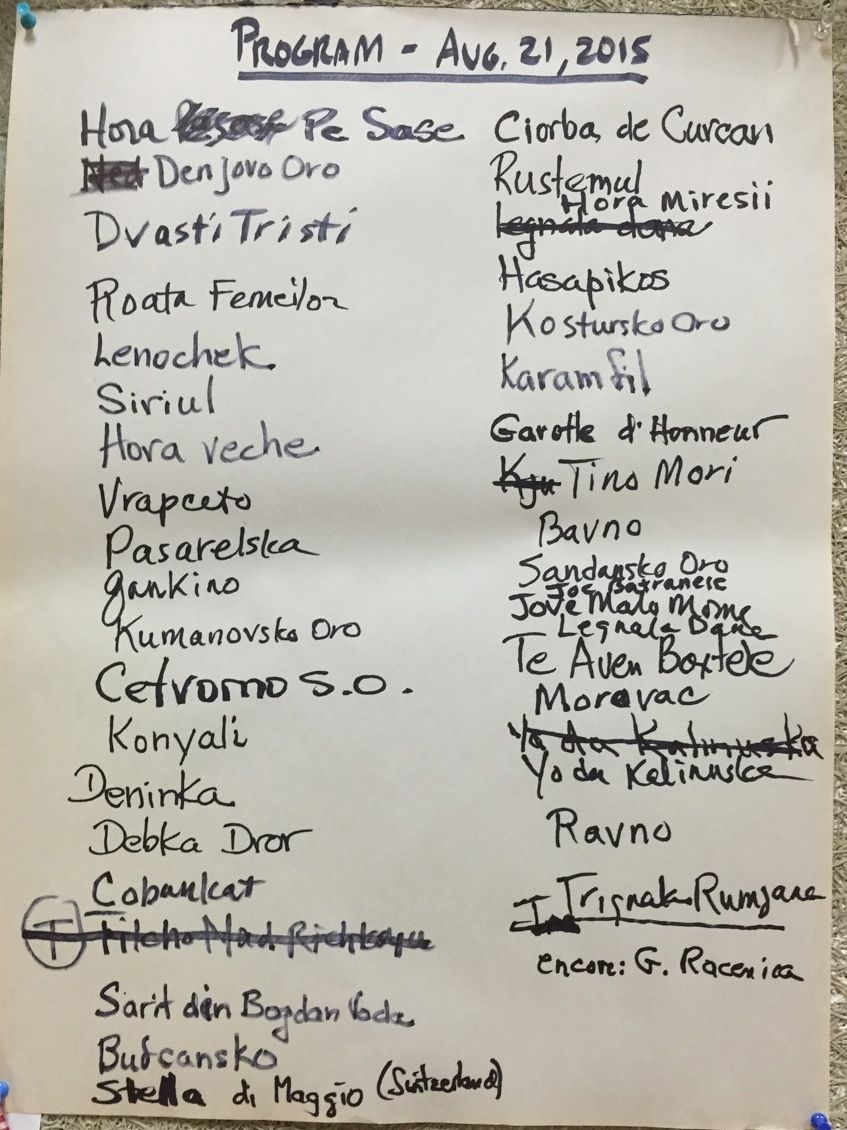 PROGRAM - AUG. 21, 2015
Hora Pe Sase
Denjovo Oro
Dvasti Tristi
Roata Femeilor
Lenochek
Siriul
Hora veche
Vrapceto
Pasarelska
Gankino
Kumanovsko Oro
Cetvorno S.O.
Konyali
Deninka
Debka Dror
Cobankat
T Ticho Nad Richkoyu
Sarit din Bogdan Voda
Bufcansko
Stella di Maggio (Switzerland)
Ciorba de Curcan
Rustemul
Hora Miresii
Legnala dana
Hasapikos
Kostursko Oro
Karamfil
Garotte d'Honneur
Tino Mori
Bavno
Sandansko Oro
Joc Batranesc
Jove Malo Mome
Legnala Dana
Te Aven Baxtele
Moravac
Yo da Kalinuska
Yo da Kalinuska
Ravno
Trignala Rumjana
encore: G. Racenica